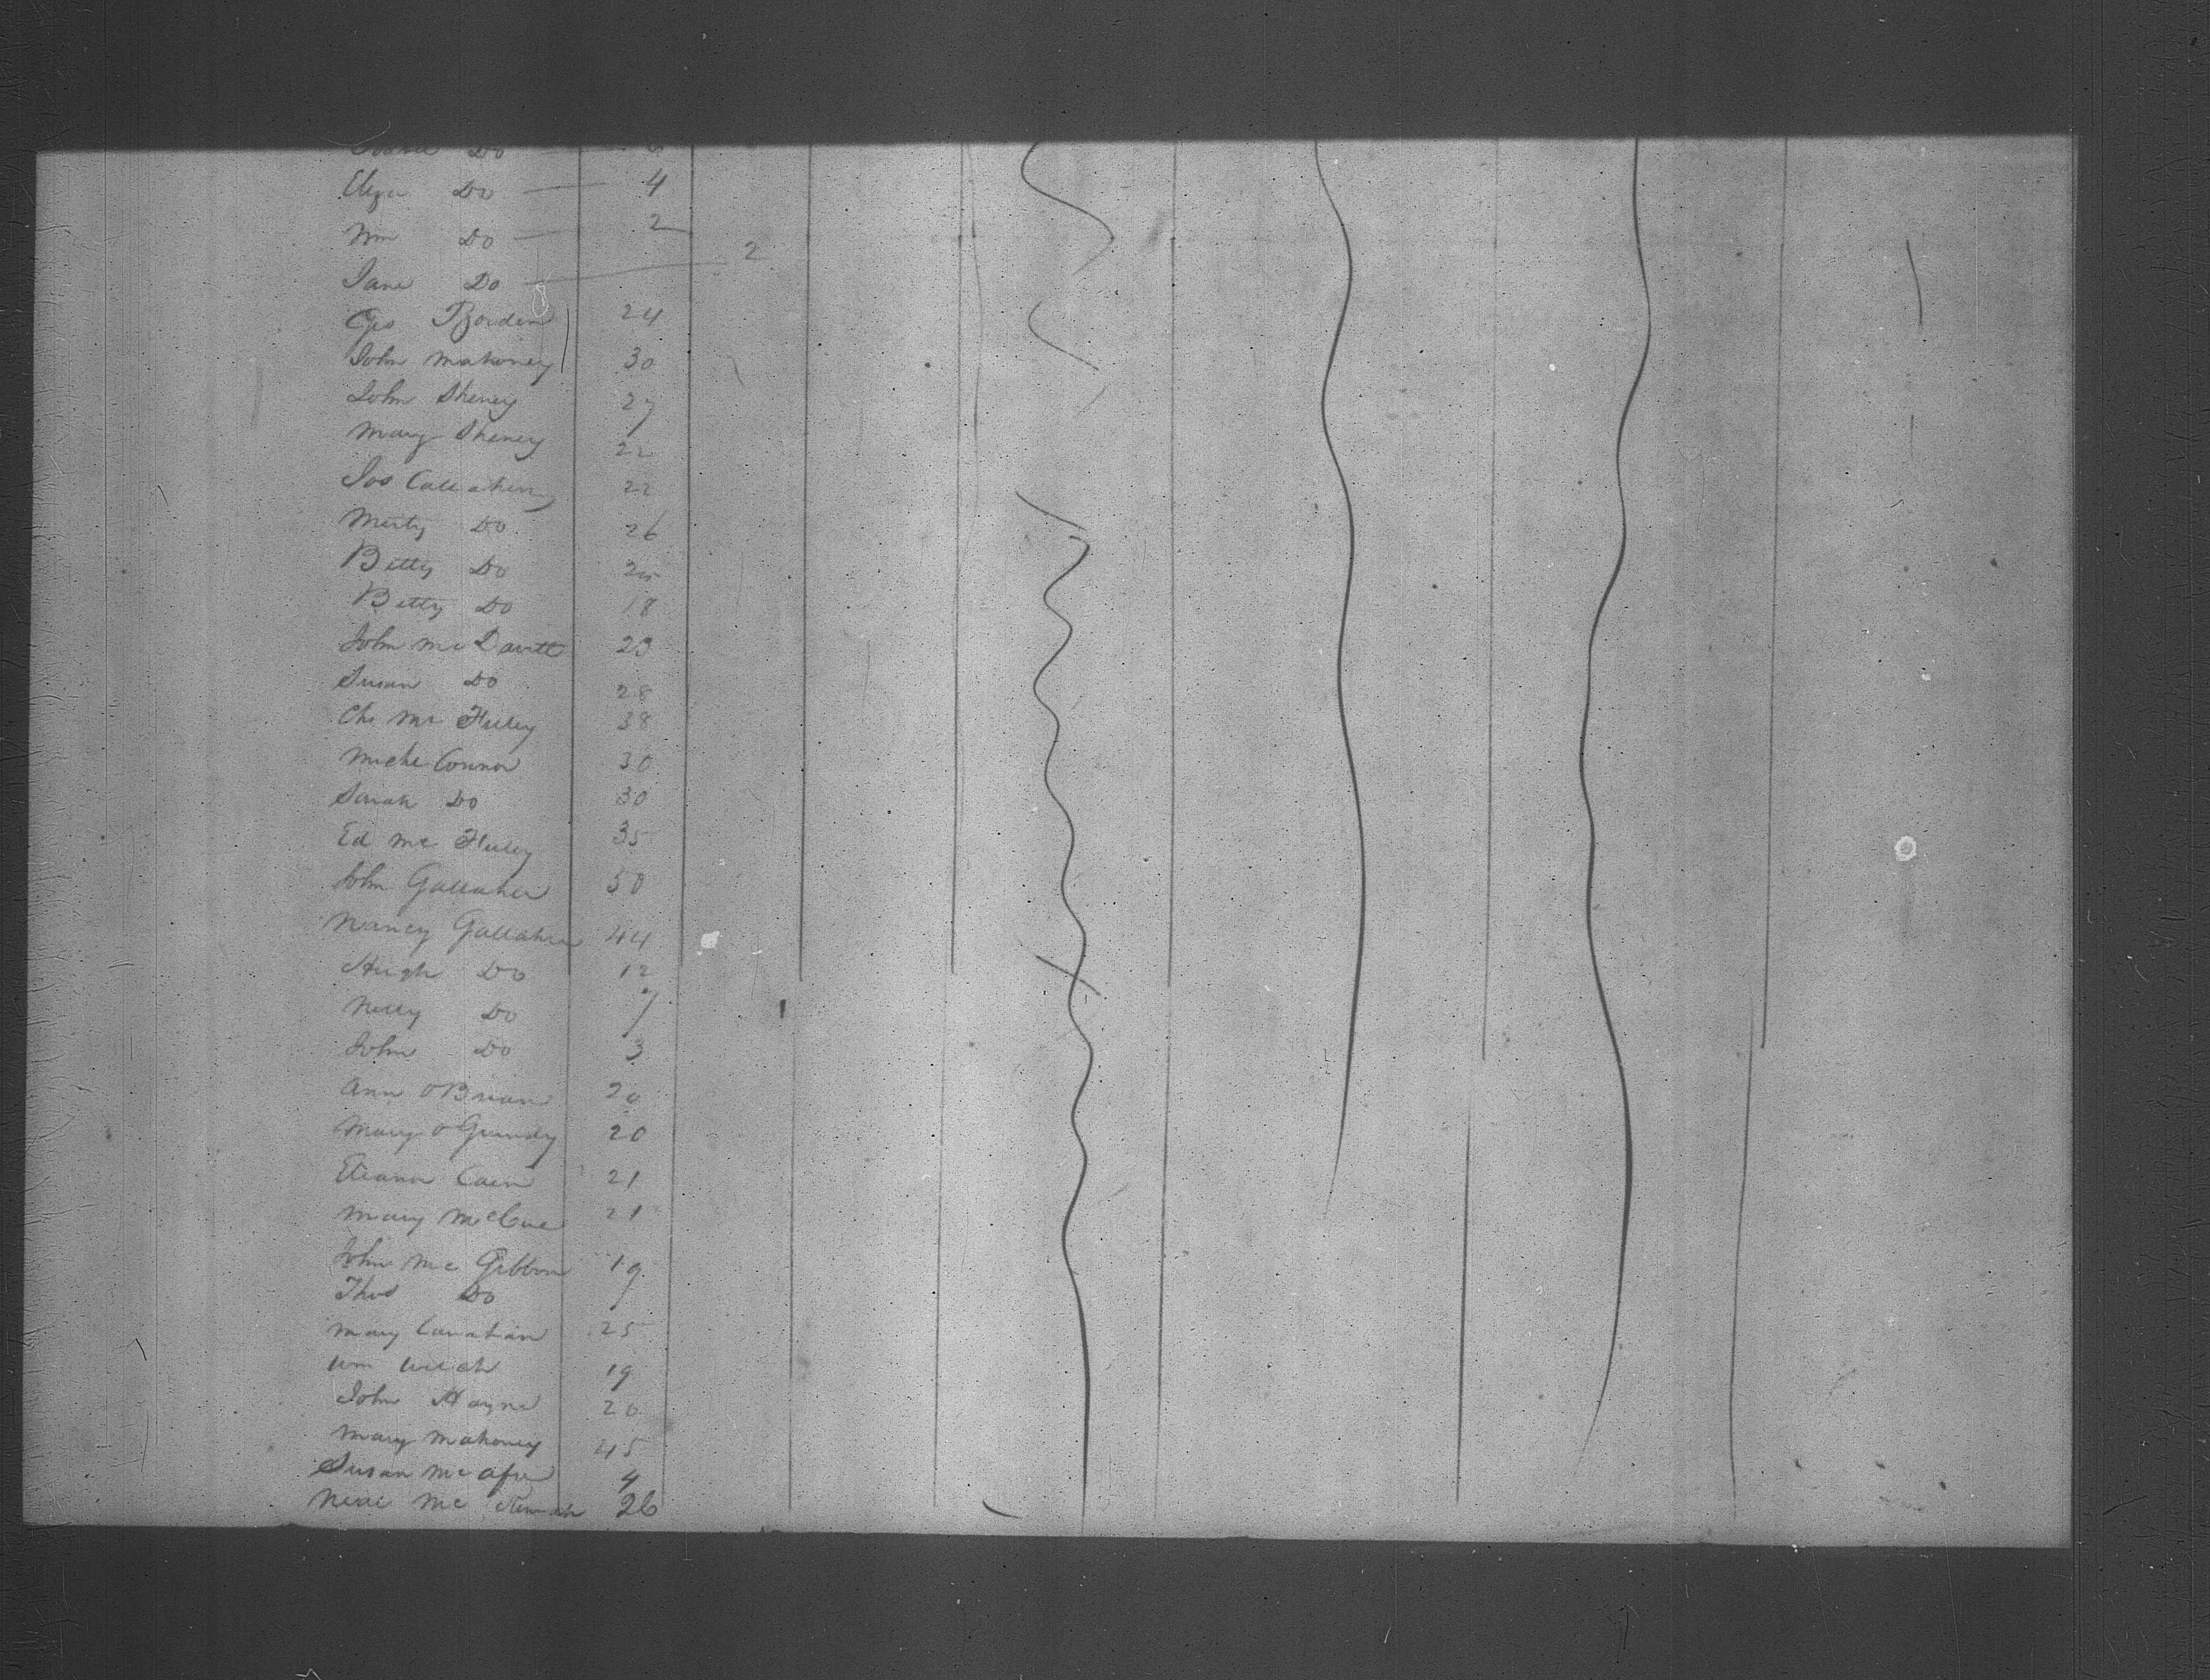 Do
Eliza Do 4
Wm Do 2
Jane Do 2
Geo Borden 24
John Mahoney 30
John Sheney 27
Mary Sheney 22
Jos Callahan 22
Do 26
Betty Do 25
Betty Do 18
John McDavitt 23
Susan Do 28
Mc 38
Connor 30
Sarah Do 30
Ed Mc 35
John Gallaher 50
Nancy Gallaher 44
Hugh Do 12
Nelly Do 7
John Do 3
Ann O'Brian 20
Mary O 20
Eleanor Cain 21
Mary McCue 21
John McGibbon 19
Thos Do 7
Mary 25
Wm Welch 19
John Hayne 20
Mary Mahoney 45
Susan McAfee 4
Mc 26